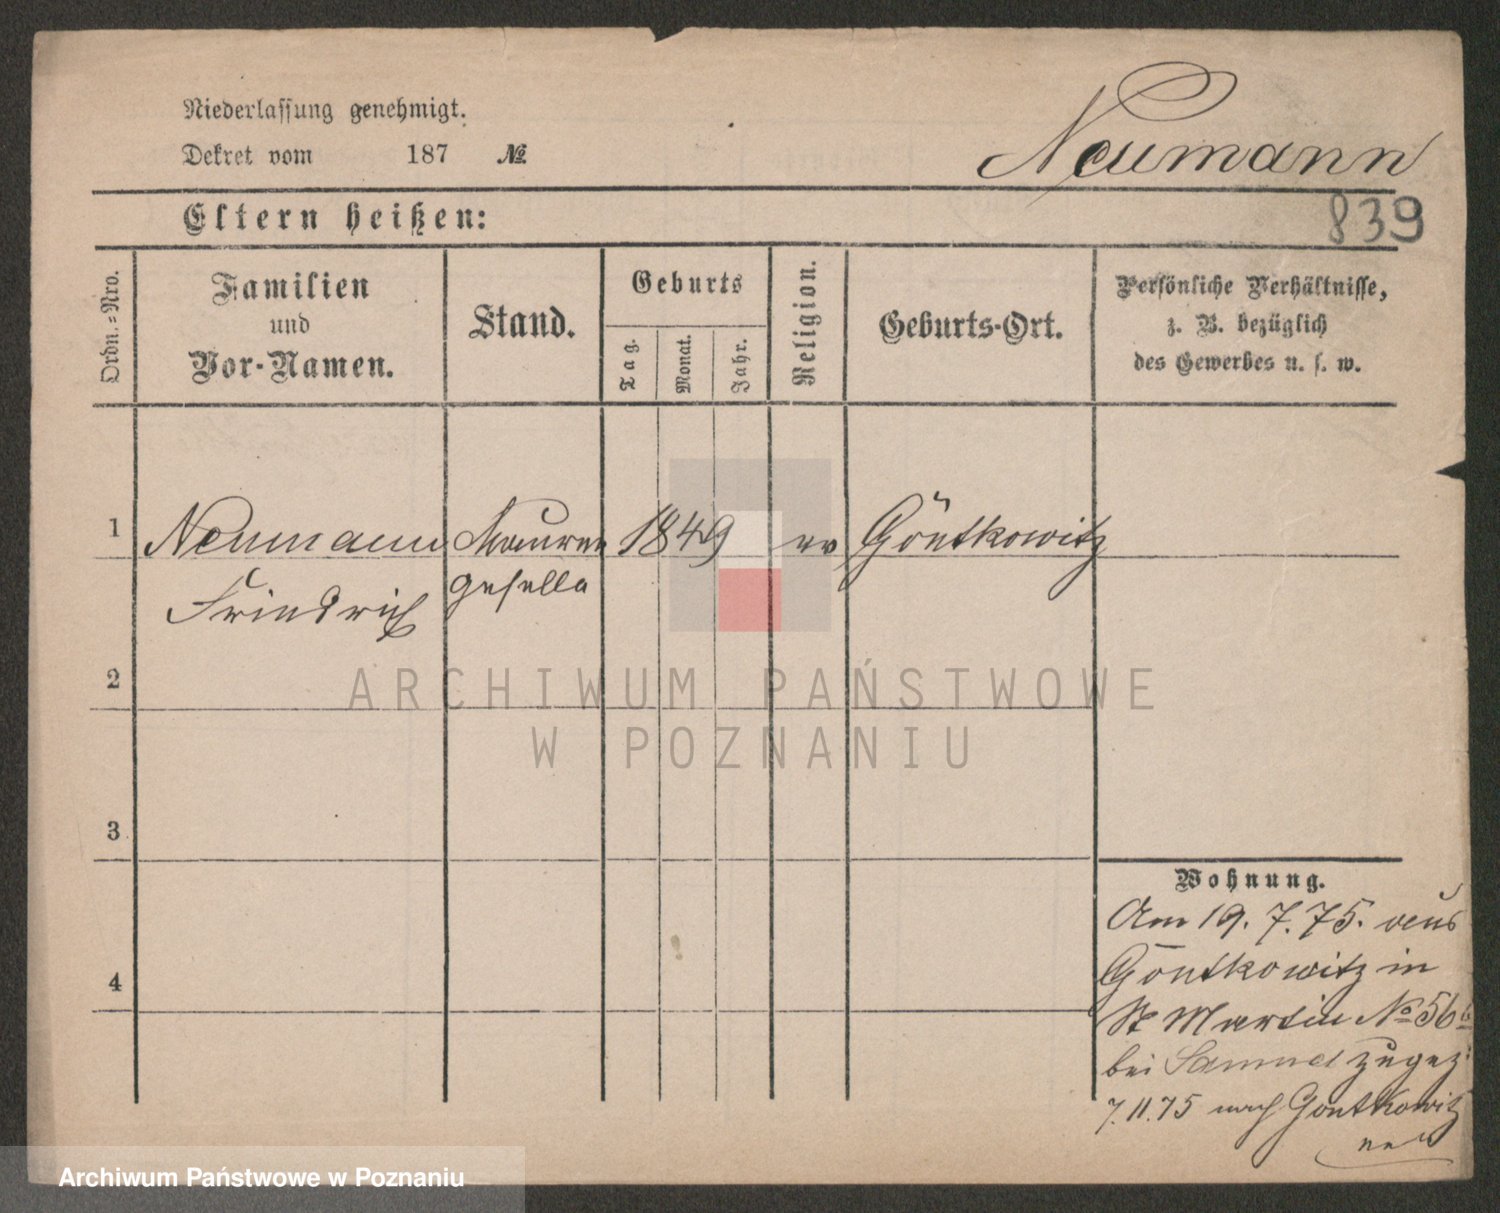 Niederlassung genehmigt.
Dekret vom 187 №
Neumann
839
Eltern heißen:
Ordn.=Nro.
Familien
und
Vor-Namen.
Stand.
Geburts
Tag.
Monat.
Jahr.
Religion.
Geburts-Ort.
Persönliche Verhältnisse,
z. B. bezüglich
des Gewerbes u. s. w.
1 Neumann Maurer 1849 ev Göntkowitz
Friedrich geselle
2
3
4
Wohnung.
Am 19. 7. 75. aus
Göntkowitz in
St Martin No 56b
bei Samuel zugez
7.11.75 nach Gontkowitz
ARCHIWUM PAŃSTWOWE
W POZNANIU
Archiwum Państwowe w Poznaniu